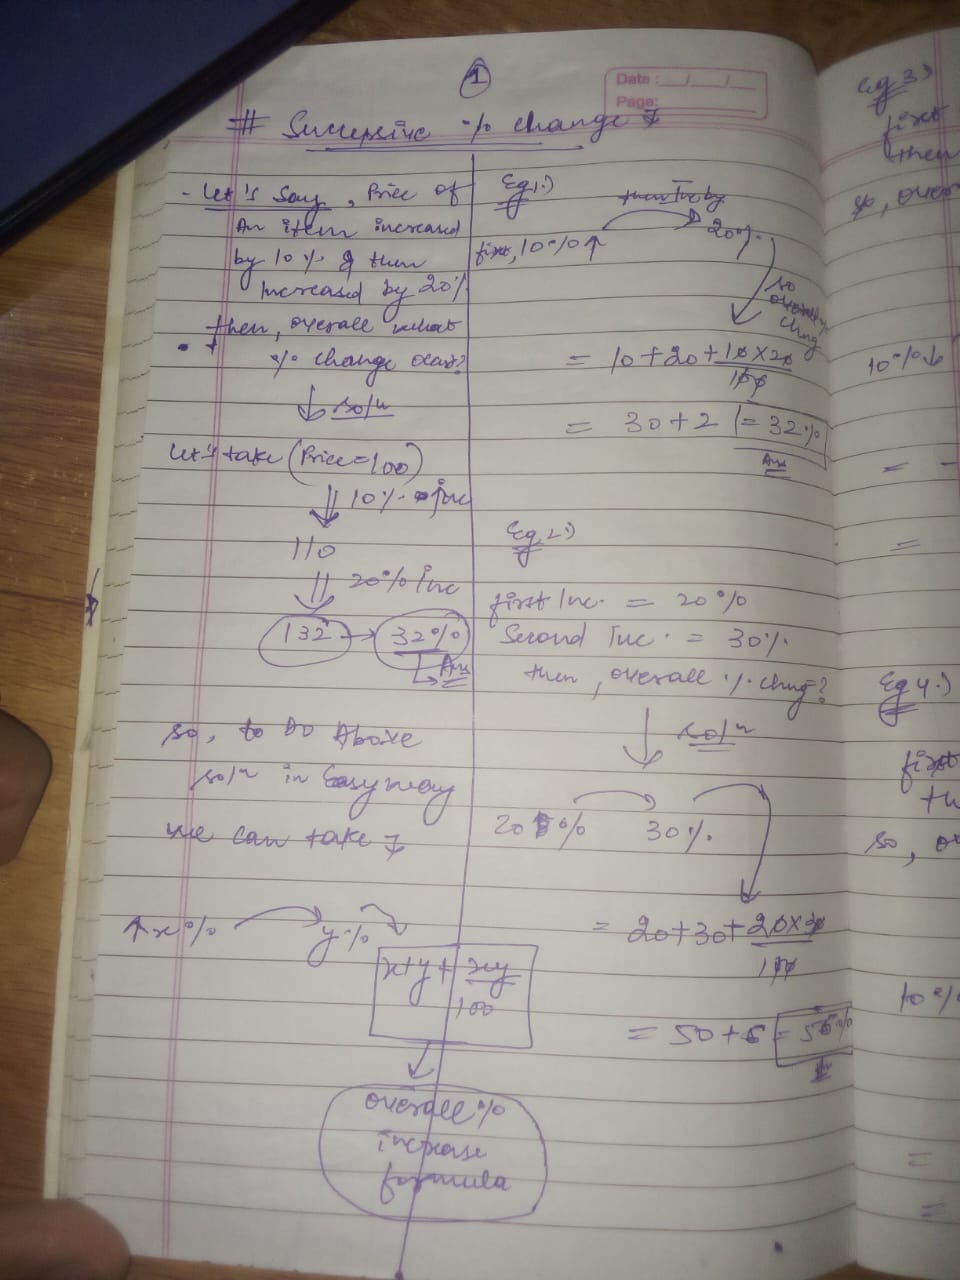 1
Date : __/__/__
Page:
# Successive % change
- Let's Say, Price of
An item increased
by 10% & then
Increased by 20%
then, overall what
% change occur?
soln
Let's take (Price=100)
10% inc
110
20% inc
132 → 32%
Ans
so, to Do Above
soln in Easy way
we can take
↑x% y%
x+y+xy/100
overall %
increase
formula
Eg 1.)
then Inc by
first, 10%↑ 20%
so
overall %
chng
= 10+20+10×20/100
= 30+2 = 32%
Ans
Eg 2.)
first Inc. = 20%
Second Inc. = 30%
then, overall % chng?
soln
20% 30%
= 20+30+20×30/100
= 50+6 = 56%
Eg 3.)
first
then
so, over
10%↓
= -
=
Eg 4.)
first
th
so, ov
10%
=
=